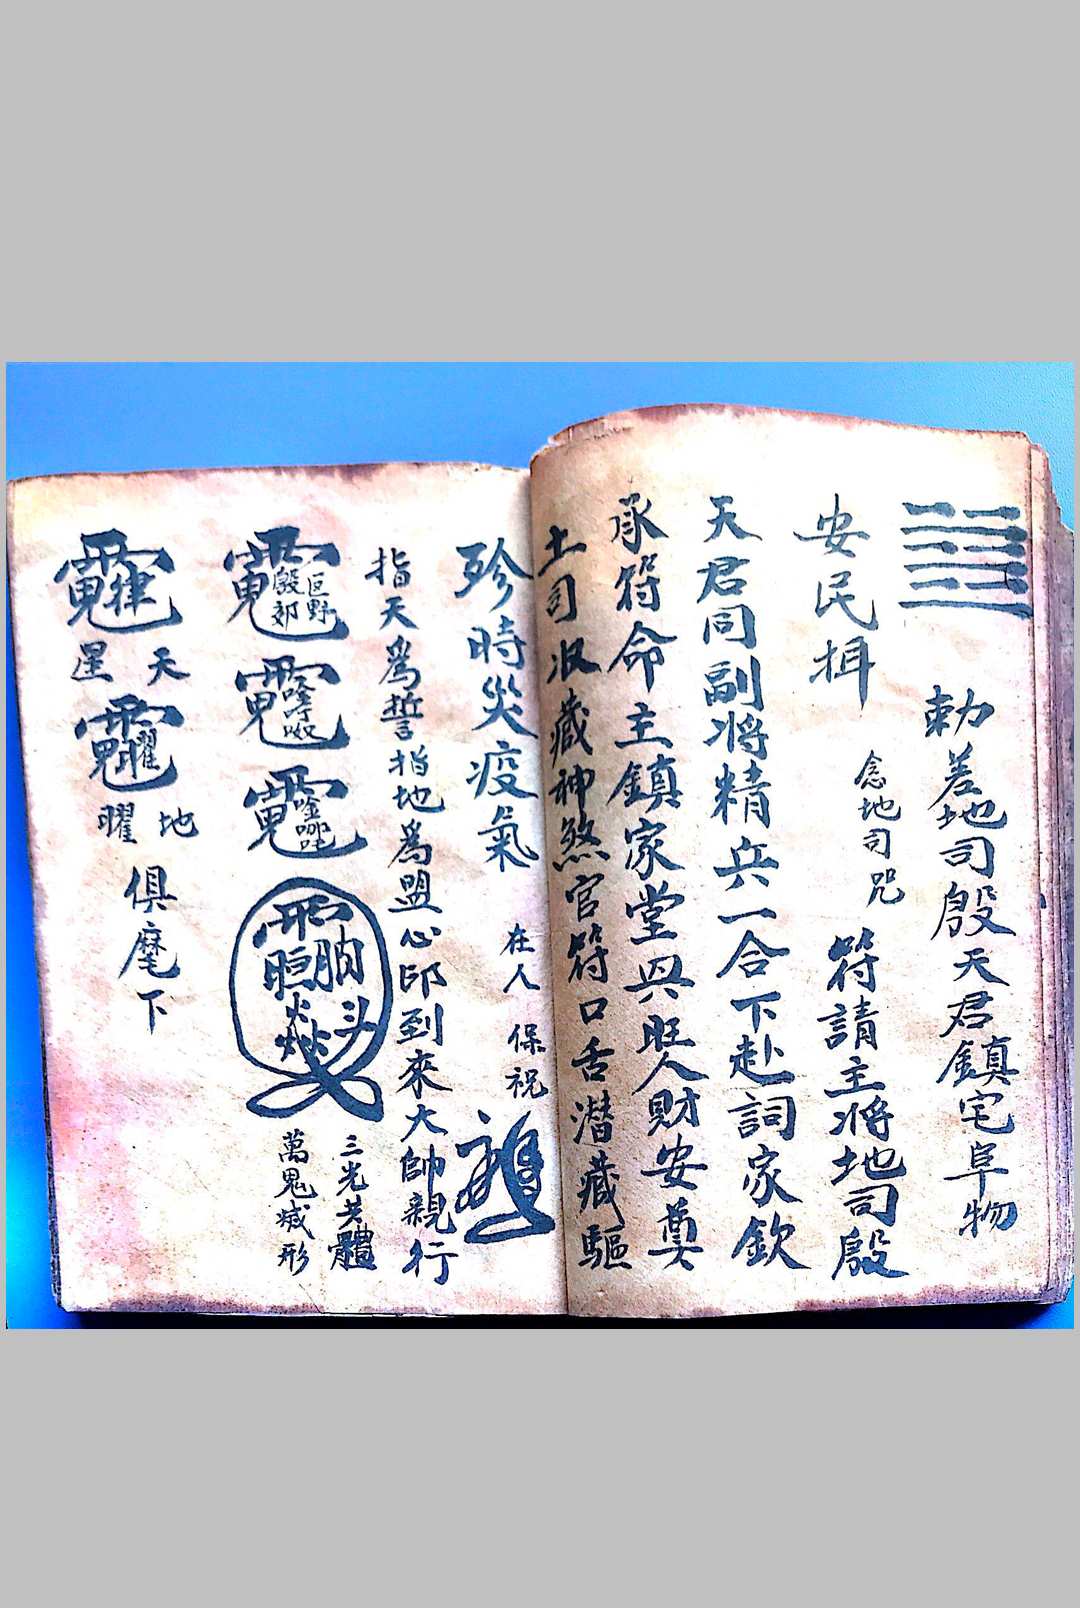 勅差地司殷天君鎮宅阜物
安民揖
念地司咒
符請主將地司殷
天君同副將精兵一合下赴詞家欽
承符命主鎮家堂興旺人財安奠
土司收藏神煞官符口舌潜藏驅
殄時災疫氣
在人
保祝
指天為誓指地為盟心印到來大帥親行
三光共體
萬鬼滅形
天
星
地
曜
俱麾下